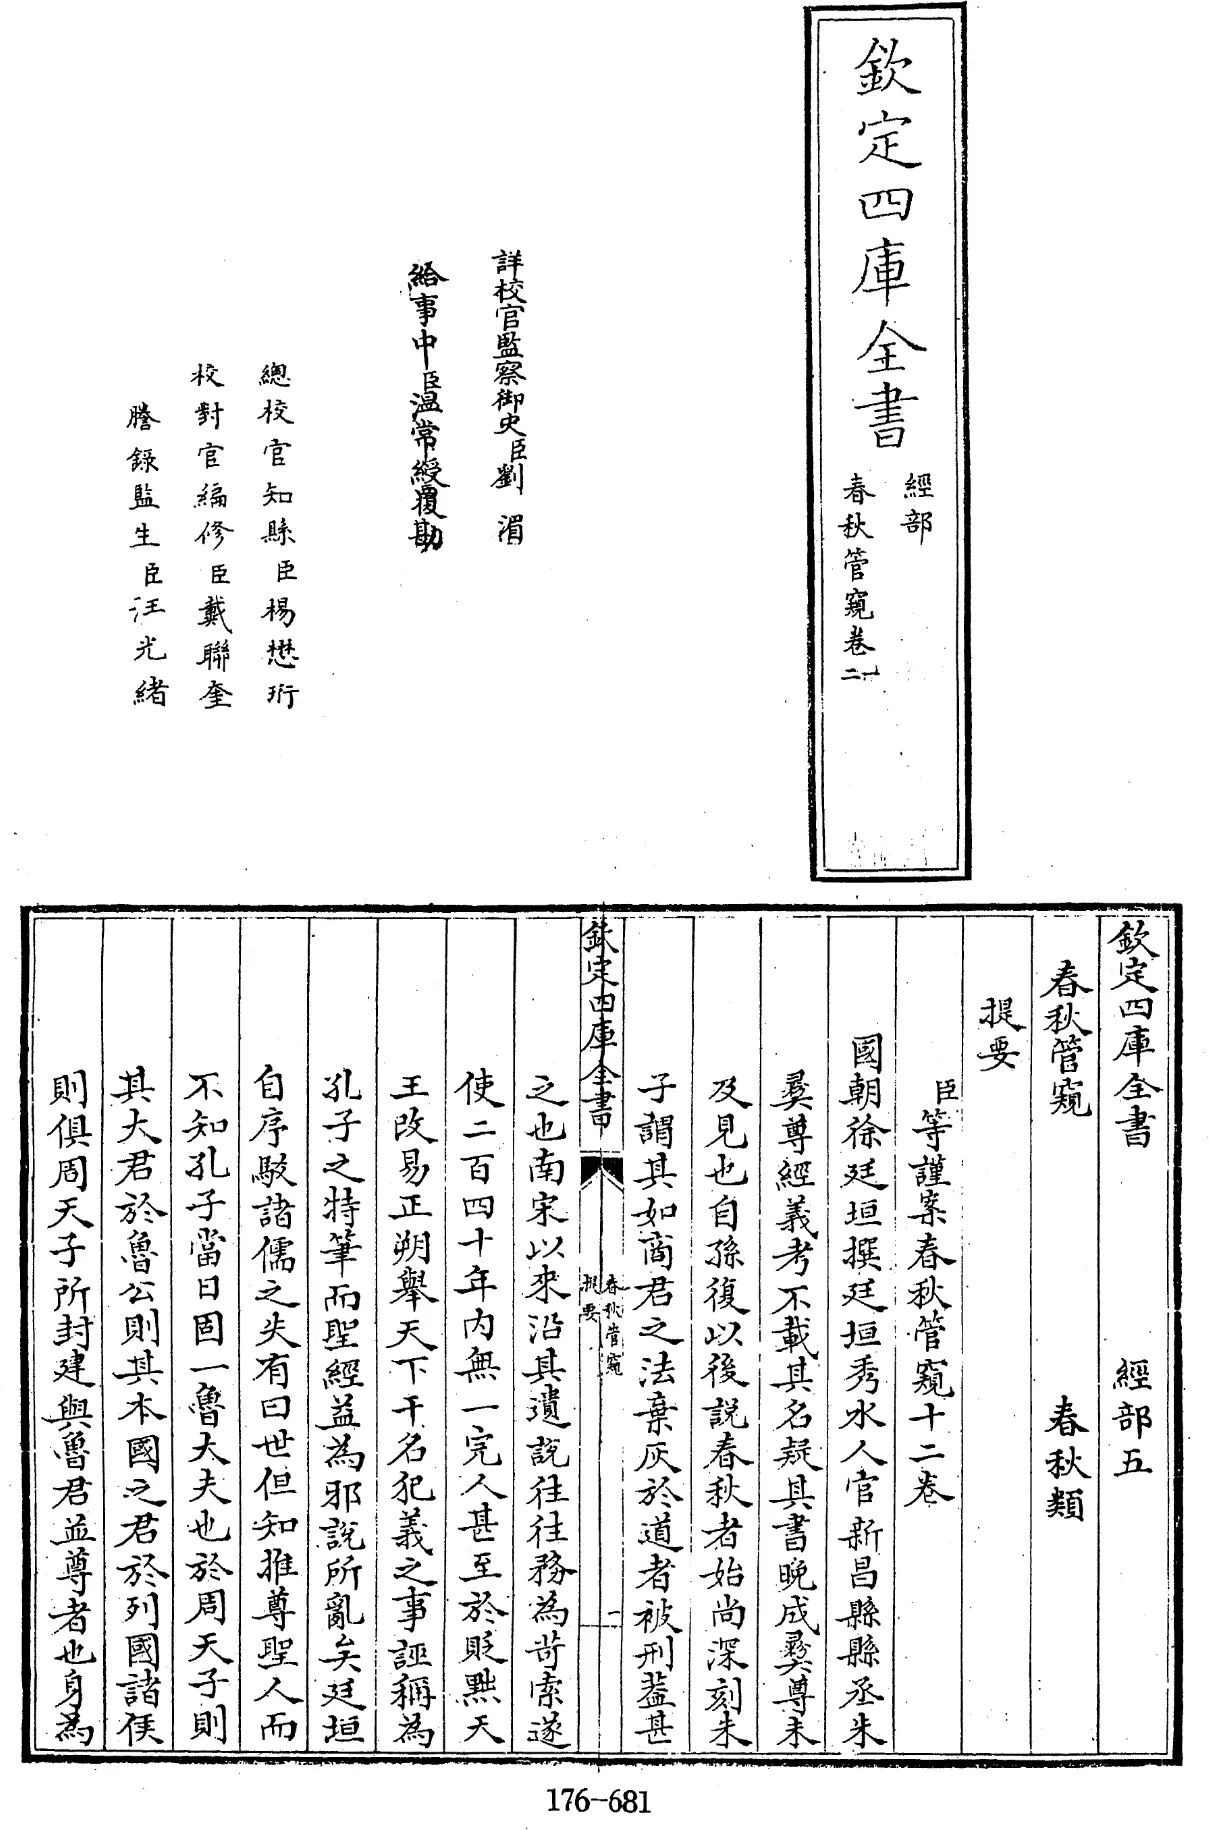 欽定四庫全書
經部
春秋管窺卷一二
詳校官監察御史臣劉湄
給事中臣溫常綬覆勘
總校官知縣臣楊懋珩
校對官編修臣戴聯奎
謄錄監生臣汪光緒
欽定四庫全書 經部五
春秋管窺 春秋類
提要
臣等謹案春秋管窺十二卷
國朝徐廷垣撰廷垣秀水人官新昌縣縣丞朱
彝尊經義考不載其名疑其書晚成彝尊未
及見也自孫復以後說春秋者始尚深刻朱
子謂其如商君之法棄灰於道者被刑葢甚
欽定四庫全書
春秋管窺
提要
一
之也南宋以來沿其遺說往往務為苛索遂
使二百四十年内無一完人甚至於貶黜天
王改易正朔舉天下干名犯義之事誣稱為
孔子之特筆而聖經益為邪說所亂矣廷垣
自序駁諸儒之失有曰世但知推尊聖人而
不知孔子當日固一魯大夫也於周天子則
其大君於魯公則其本國之君於列國諸侯
則俱周天子所封建與魯君並尊者也身為
176-681